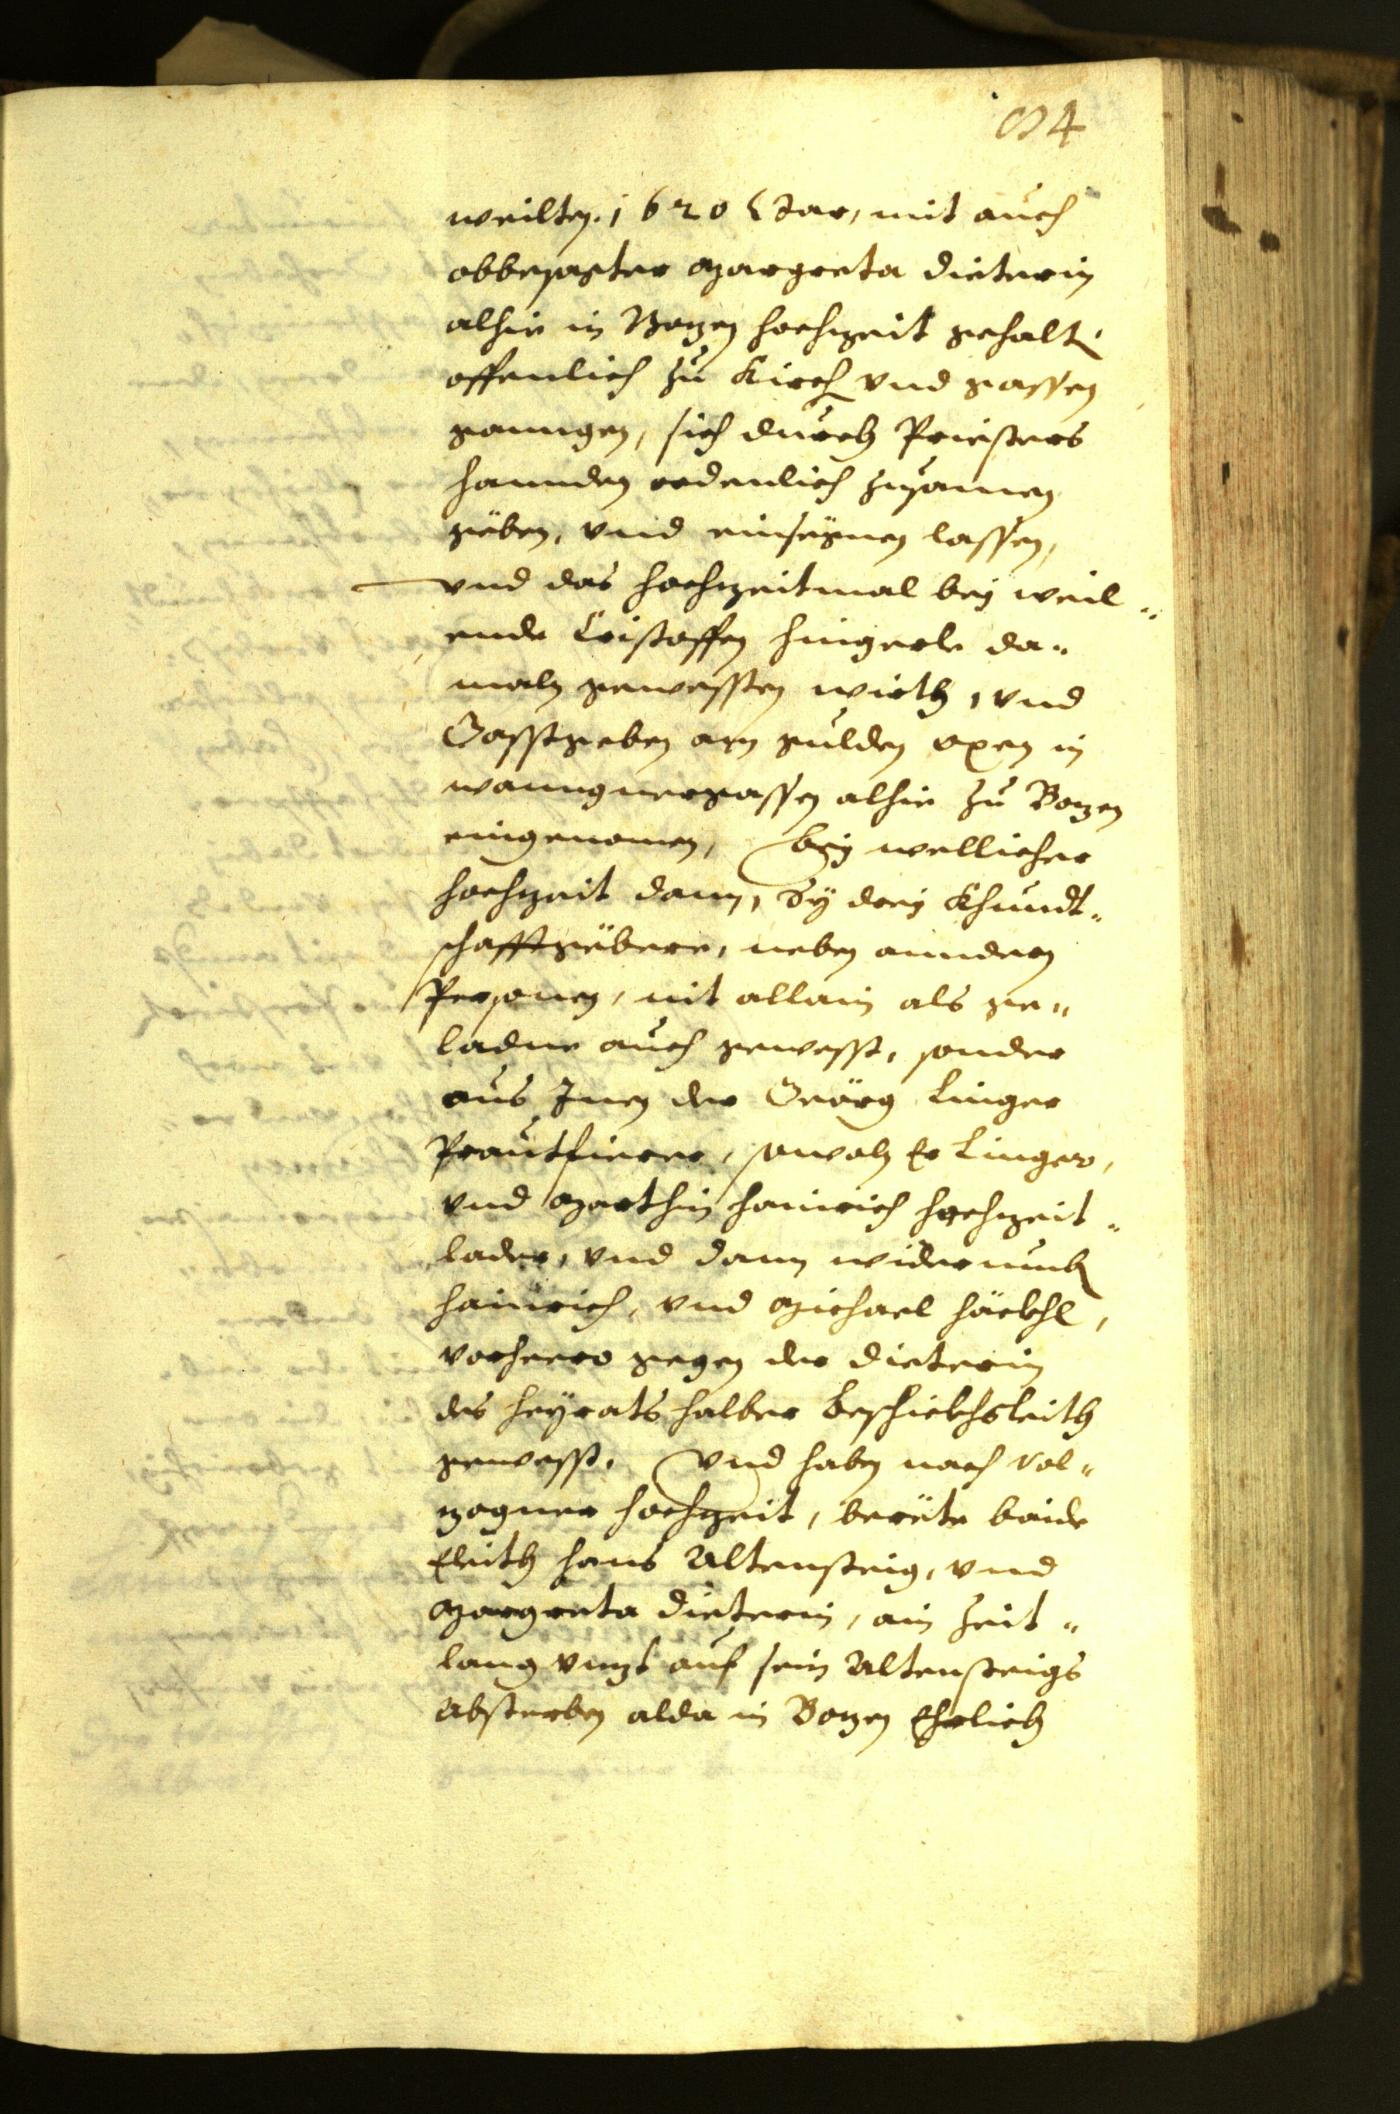 weilten. 1620 Jar, mit auch
obbesagter Margreta Dieterin
alhie in Bozen hochzeit gehalt
offenlich zu Kirch vnd gassen
ganngen, sich durch Priesters
hannden ordenlich zusamen
geben, vnd einsegnen lassen,
vnd das hochzeitmal bey weil„
ende Cristoffen hingerle da„
maln gewessten wirth, vnd
Gasstgeben am gulden oxen in
wanngnergassen alhie zu Bozen
eingenomen, bey wellicher
hochzeit dann, Sy drey Khundt„
schafftgebere, neben anndern
Personen, nit allain als ge„
ladne auch gewesst, sonder
aus Inen der Geörg Linger
Prautfierer, sowoln Er Linger,
vnd Marthin hainrich hochzeit„
lader, vnd dann widerumb
hainrich, vnd Michael häckhl,
vorheero gegen der Dieterin
des heyrats halber beschickhsleith
gewesst. Vnd haben nach vol„
zogner hochzeit, berüte baide
Eleith hans Altensteig, vnd
Margreta Dieterin, ain Zeit„
lang vnnzt auf sein Altensteigs
Absterben alda in Bozen Ehrlich